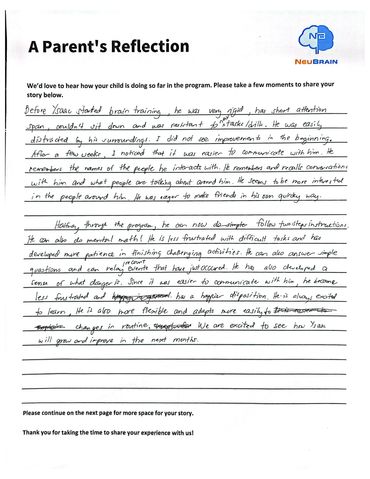 NEUBRAIN
A Parent's Reflection
We'd love to hear how your child is doing so far in the program. Please take a few moments to share your
story below.
Before Ysaac started brain training, he was very rigid, has short attention
span, couldn't sit down and was resistant to new tasks/skills. He was easily
distracted by his surroundings. I did not see improvements in the beginning.
After a few weeks, I noticed that it was easier to communicate with him. He
remembers the names of the people he interacts with. He remembers and recalls conversations
with him and what people are talking about around him. He seems to be more interested
in the people around him. He was eager to make friends in his own quirky way.
Halfway through the program, he can now do simple follow two steps instructions.
He can also do mental math! He is less frustrated with difficult tasks and has
developed more patience in finishing challenging activities. He can also answer simple
questions and can relay recent events that have just occured. He has also developed a
sense of what danger is. Since it was easier to communicate with him, he became
less frustrated and has a happier disposition. He is always excited
to learn. He is also more flexible and adapts more easily to
changes in routine, We are excited to see how Ysaac
will grow and improve in the next months.
Please continue on the next page for more space for your story.
Thank you for taking the time to share your experience with us!